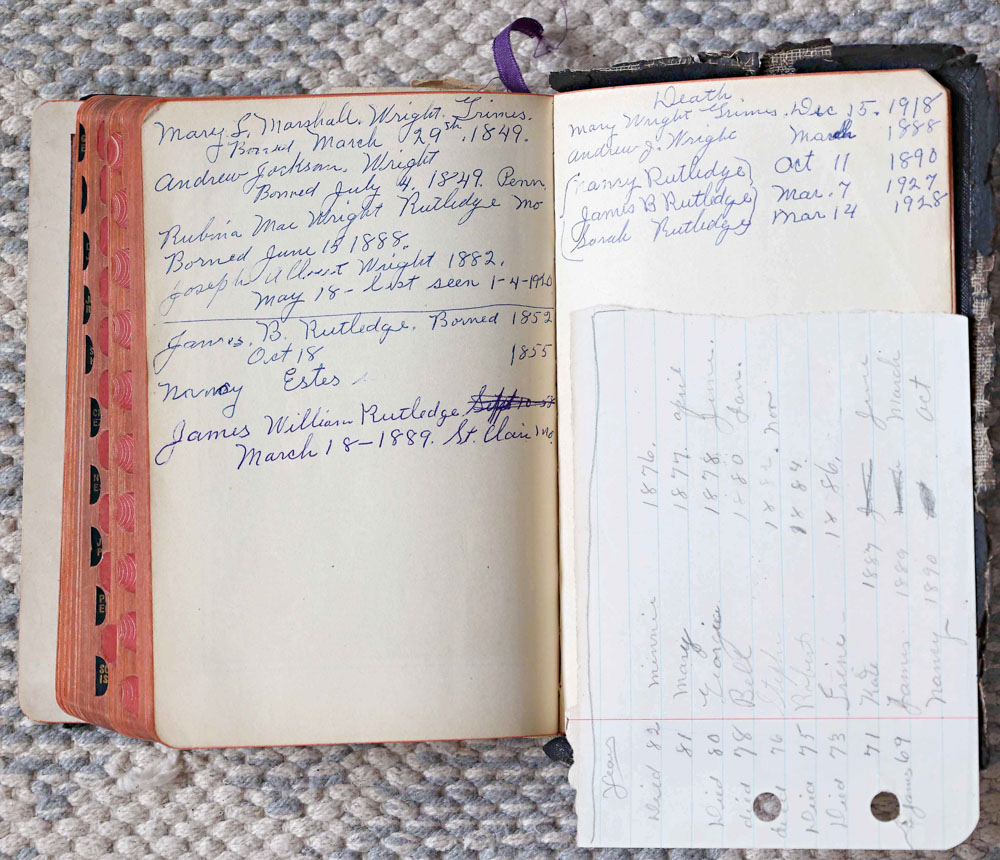 Mary L. Marshall. Wright. Grimes.
Borned March 29th. 1849.
Andrew Jackson. Wright
Borned July 4. 1849. Penn.
Rubina Mae Wright Rutledge Mo
Borned June 15 1888.
Joseph Albert Wright 1882.
May 18 - last seen 1-4-1920
James. B. Rutledge. Borned 1852
Oct 18 1855
Estes
James William Rutledge.
March 18-1889. St. Clair Mo.
Death.
Mary Wright Grimes. Dec 15. 1918
Andrew J. Wright March 1888
Nancy Rutledge Oct 11 1890
James B Rutledge Mar. 7 1927
Sarah Rutledge Mar 14 1928
Years
Died 82 Minnie 1876.
81 Mary 1877. April
Died 80 Georgia 1878. June.
did 78 Bell 1880 Jan.
76 Nov
Died 75 Robert 1884.
Died 73 Irine 1886.
71 Kate 1887 June
69 James 1889 March
Nancy 1890 Oct